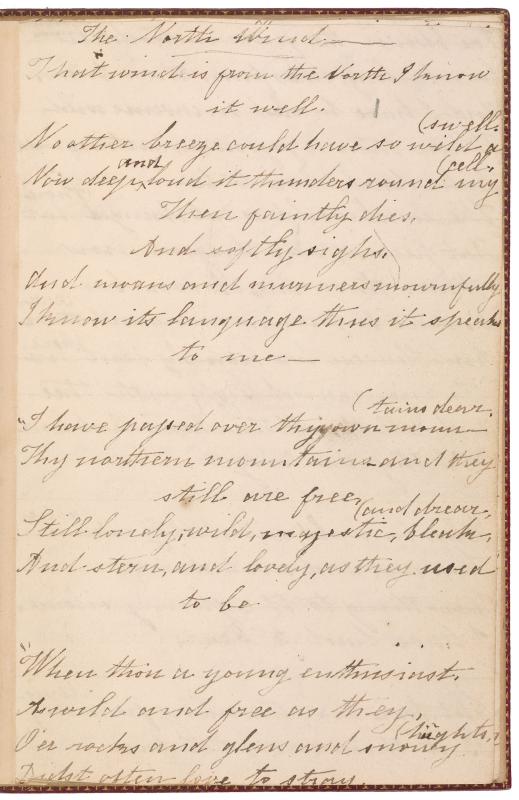 The North Wind
That wind is from the North I know
it well.
(swell.
No other breeze could have so wild a
(cell.
Now deep and loud it thunders round my
Then faintly dies,
And softly sighs,
And moans and murmers mournfully
I know its language thus it speaks
to me —
(tains dear.
"I have passed over thy own moun-
Thy northern mountains and they
still are free,
(and drear,
Still lonely, wild, majestic, bleak,
And stern, and lovely, as they used
to be
"When thou a young enthusiast.
As wild and free as they,
O'er rocks and glens and snowy
Didst often love to stray.